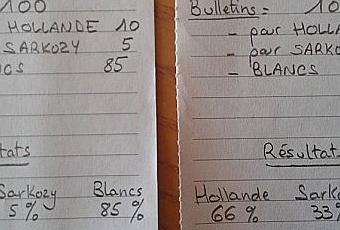 100
HOLLANDE 10
SARKOZY 5
85
tats
Sarkozy Blancs
5% 85%
Bulletins = 10
- pour HOLLA
- pour SARKO
- BLANCS
Résultat
Hollande Sark
66% 33%